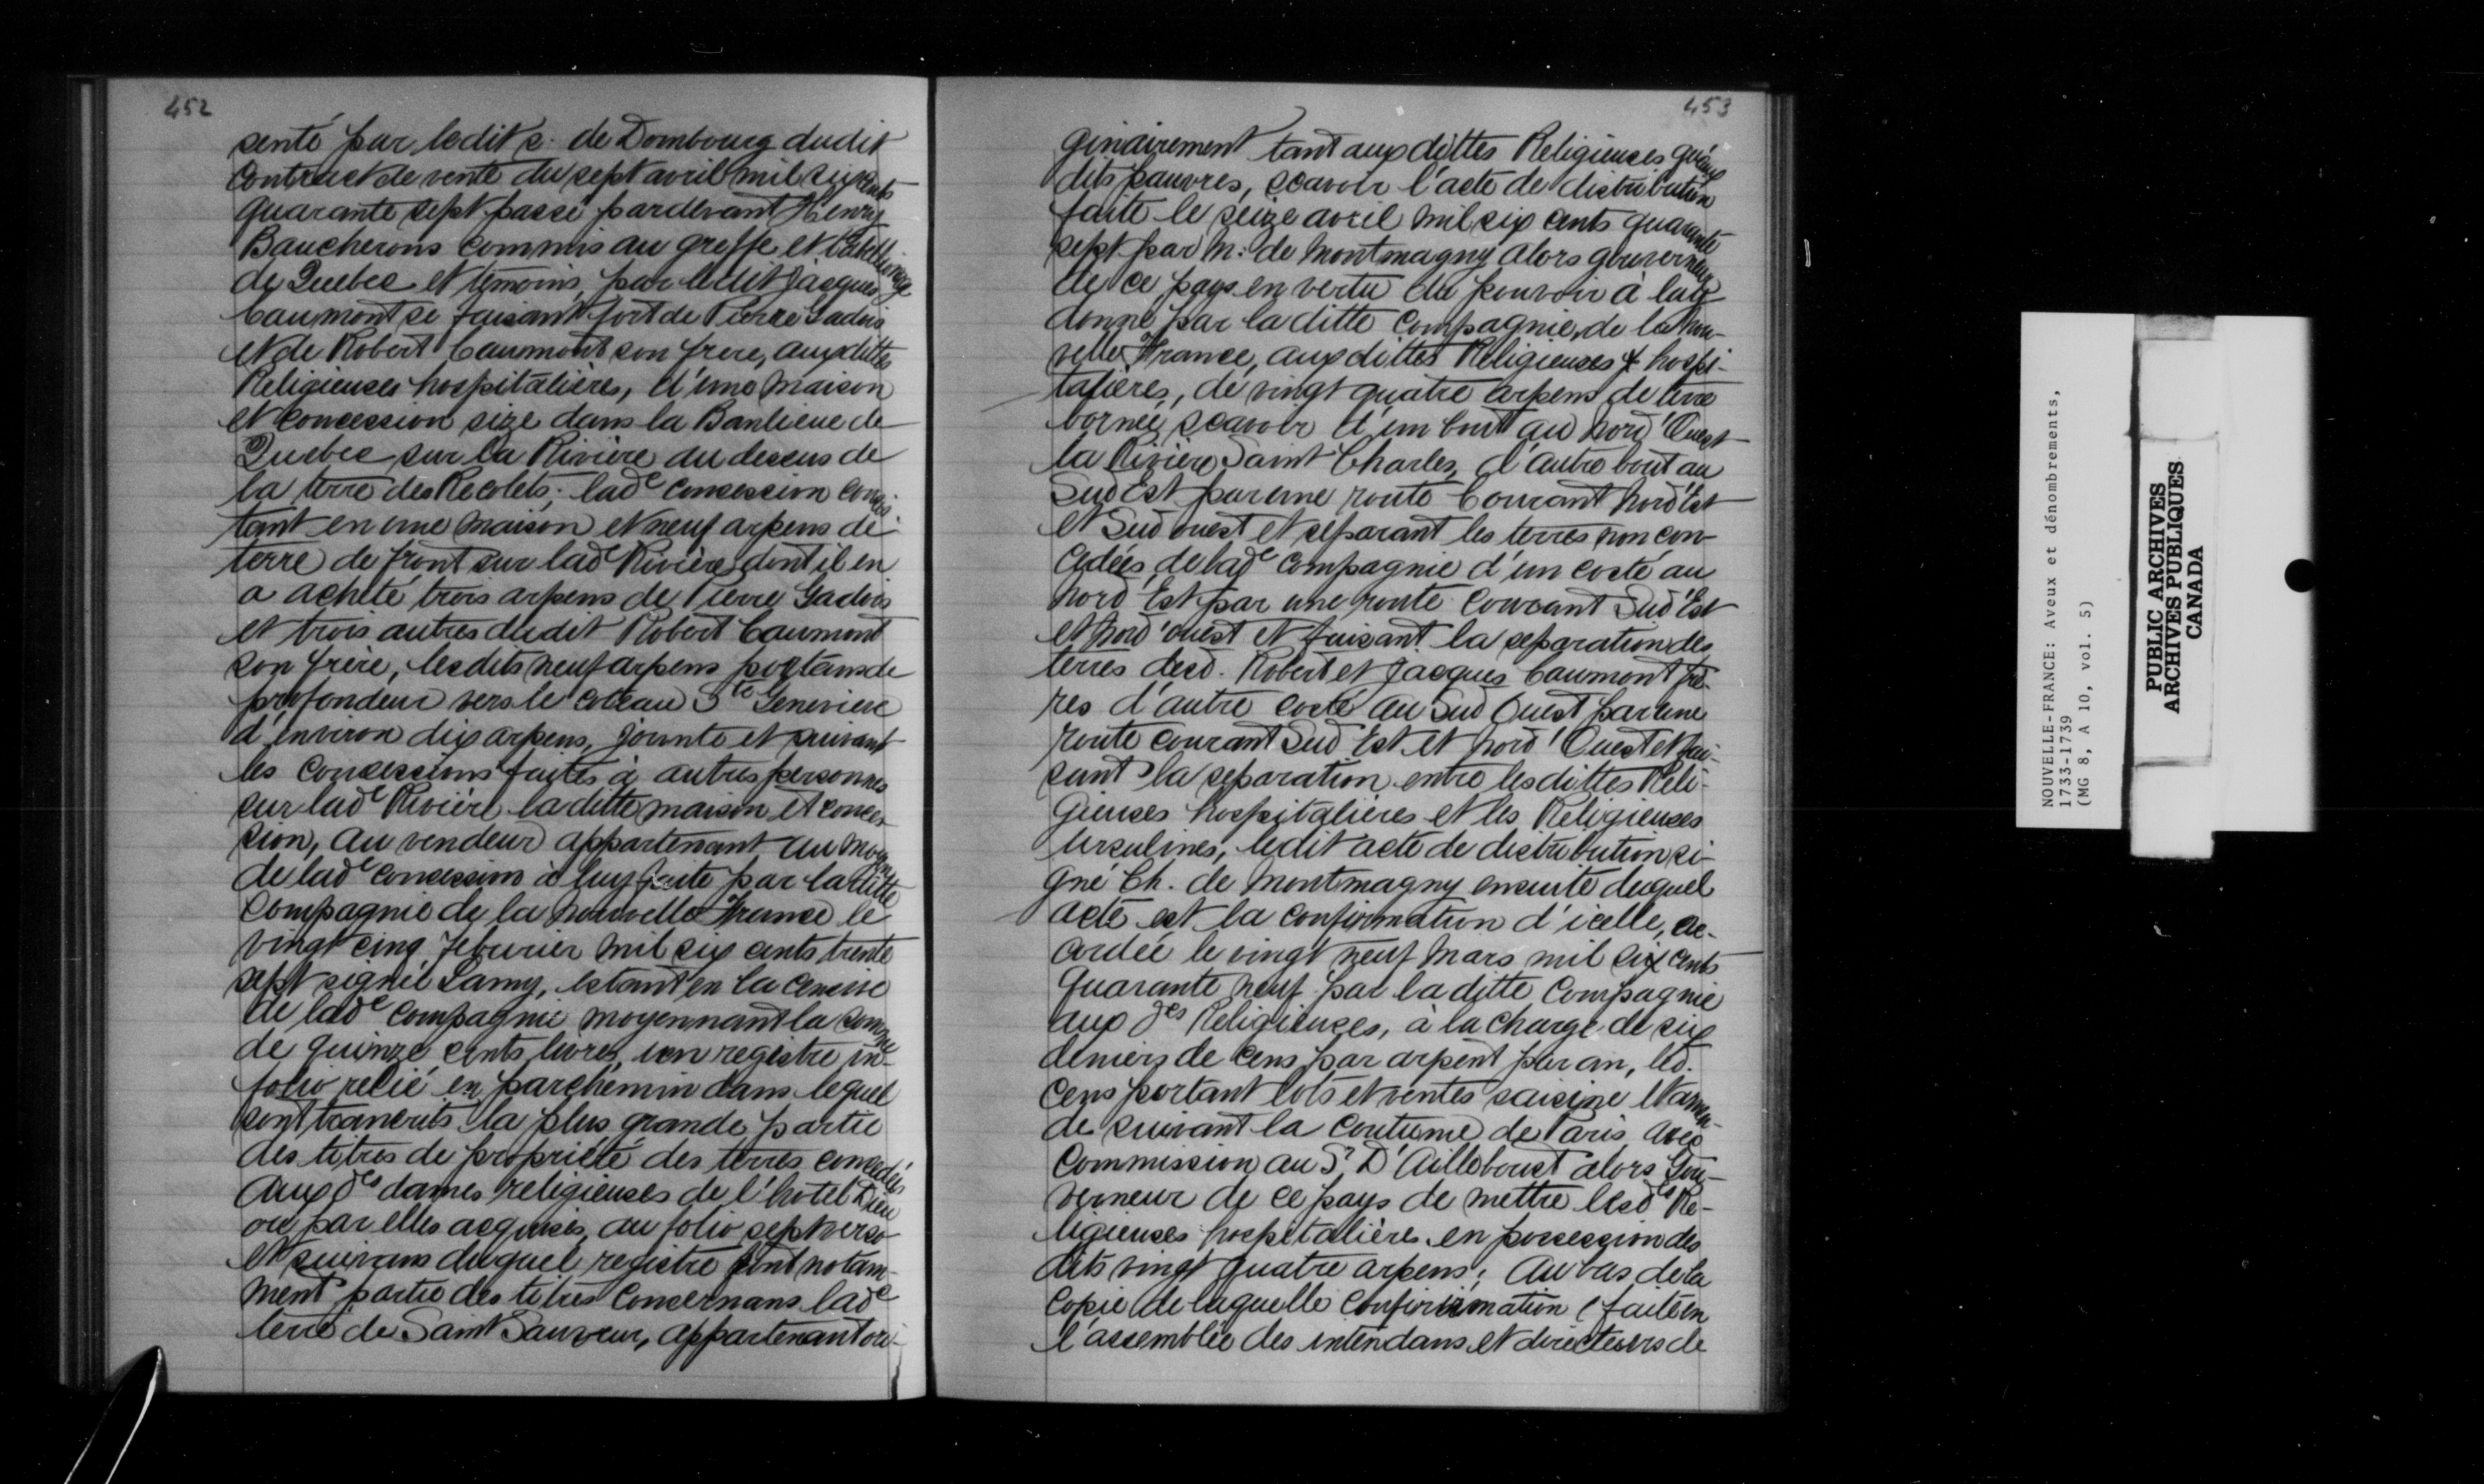 452
senté par ledit s. de Dombourg dudit
Contract de vente du sept avril mil six cents
quarante sept passé pardevant Henry
Baucherons commis au greffe et tabellionage
de Quebec et temoins, par ledit Jacques
Caumont se faisant fort de Pierre Gadois
et de Robert Caumont son frere, auxdittes
Religieuses hospitalières, d'une maison
et concession size dans la Banlieue de
Quebec sur la Rivière au dessus de
la terre des Recolets; lade concession consis-
tant en une maison et neuf arpens de
terre de front sur lade Rivière dont il en
a acheté trois arpens de Pierre Gadois
et trois autres dudit Robert Caumont
son frère, lesdits neuf arpens portans de
profondeur vers le coteau Ste Genevieve
d'environ dix arpens, jointe et suivant
les concessions faites à autres personnes
sur lade Rivière laditte maison et conces-
sion, au vendeur appartenant au moyen
de lade concession à luy faite par laditte
Compagnie de la nouvelle France le
vingt cinq feburier mil six cents trente
sept signée Lamy, estant en la censive
de lade Compagnie moyennant la somme
de quinze cents livres, un registre in-
folio relié en parchemin dans lequel
sont transcrits la plus grande partie
des titres de propriété des terres concedées
aux des dames religieuses de l'hotel Dieu
ou par elles acquises, au folio sept verso
et suivans duquel registre sont notam-
ment partie des titres concernans lade
terre de Saint Sauveur, appartenant ori-
453
ginairement tant aux dittes Religieuses qu'aux
dits pauvres, scavoir l'acte de distribution
faite le seize avril mil six cents quarante
sept par M: de Montmagny alors gouverneur
de ce pays en vertu du pouvoir à luy
donné par laditte Compagnie de la nou-
velle France, aux dittes Religieuses hospi-
talières, de vingt quatre arpens de terre
bornée, scavoir d'un bout au nord Ouest
la Rivière Saint Charles, d'autre bout au
Sud Est par une route Courant nord Est
et Sud ouest et separant les terres non con-
cedées de lade Compagnie d'un costé au
nord Est par une route Courant Sud Est
et nord ouest et faisant la separation des
terres desd. Robert et Jacques Caumont frè-
res d'autre costé au Sud Ouest par une
route courant Sud Est et nord Ouest et fai-
sant la separation entre lesdittes Reli-
gieuses hospitalières et les Religieuses
Ursulines, ledit acte de distribution si-
gné Ch. de Montmagny ensuite duquel
acte est la confirmation d'icelle, ac-
cordée le vingt neuf mars mil six cents
quarante neuf par laditte Compagnie
aux des Religieuses, à la charge de six
deniers de cens par arpent par an, led.
Cens portant lots et ventes saisine et amen-
de suivant la Coutume de Paris avec
Commission au Sr D'Ailleboust alors Gou-
verneur de ce pays de mettre lesdes Re-
ligieuses hospitalières en possession des
dits vingt quatre arpens; Au bas de la
Copie de laquelle confirmation (faite en
l'assemblée des intendans et directeurs de
NOUVELLE-FRANCE: Aveux et dénombrements,
1733-1739
(MG 8, A 10, vol. 5)
PUBLIC ARCHIVES
ARCHIVES PUBLIQUES
CANADA